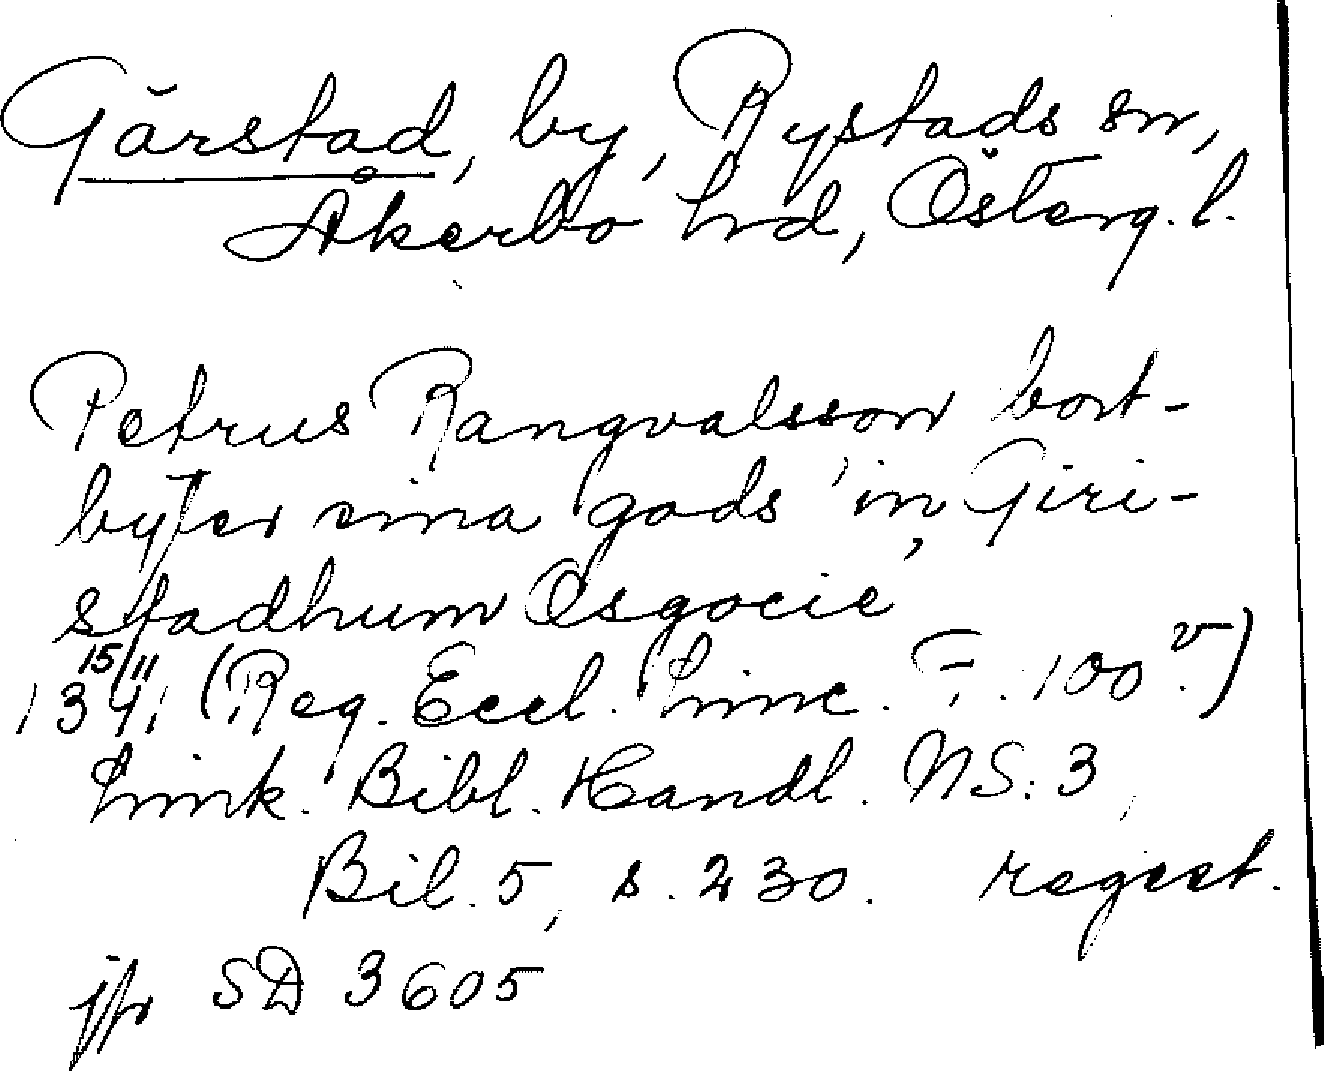 Gärstad, by, Rystads sn,
Åkerbo hd, Österg. l.
Petrus Rangvalsson bort-
byter sina gods "in Giri-
stadhum Osgocie"
15/11
1341 (Reg. Eccl. Linc. F. 100 v.)
Link. Bibl. Handl. NS: 3,
Bil. 5, s. 230. regest.
jfr SD 3605